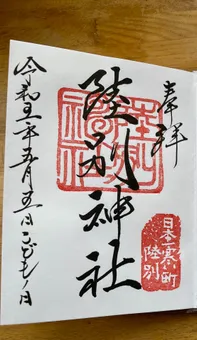 奉拝
陸別神社
陸別神社
日本一寒い町
陸別
令和五年五月五日こどもノ日